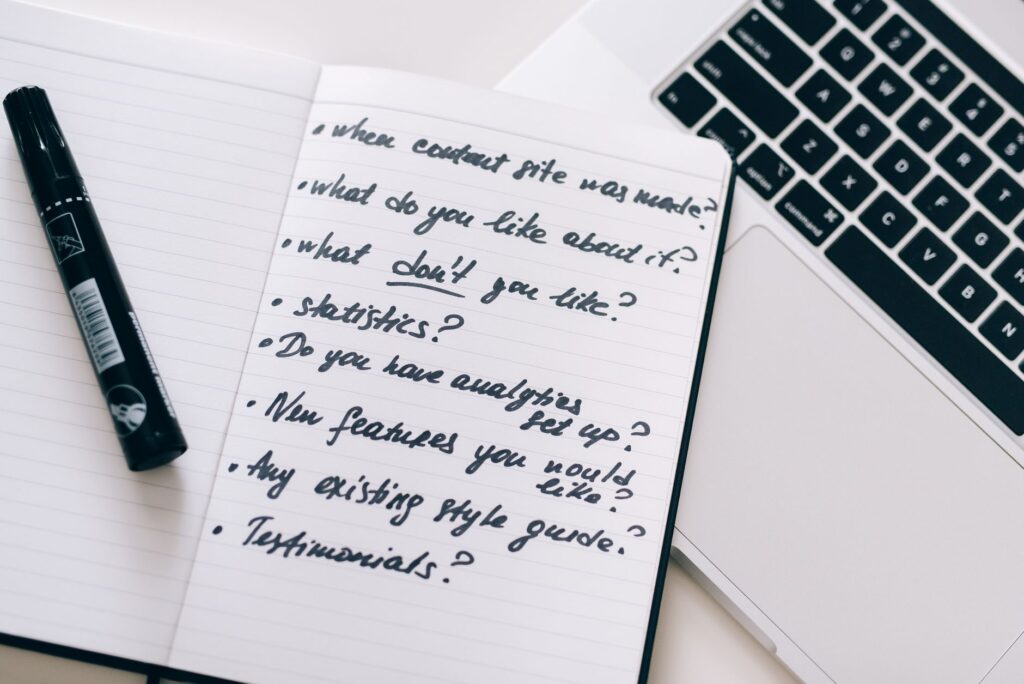 • when content site was made?
• what do you like about it?
• what don't you like?
• statistics?
• Do you have analytics
set up?
• New features you would
like?
• Any existing style guide?
• Testimonials?
1
2
3
4
5
Q
W
E
R
T
caps lock
A
S
D
F
G
shift
Z
X
C
V
B
N
fn
option
command ⌘